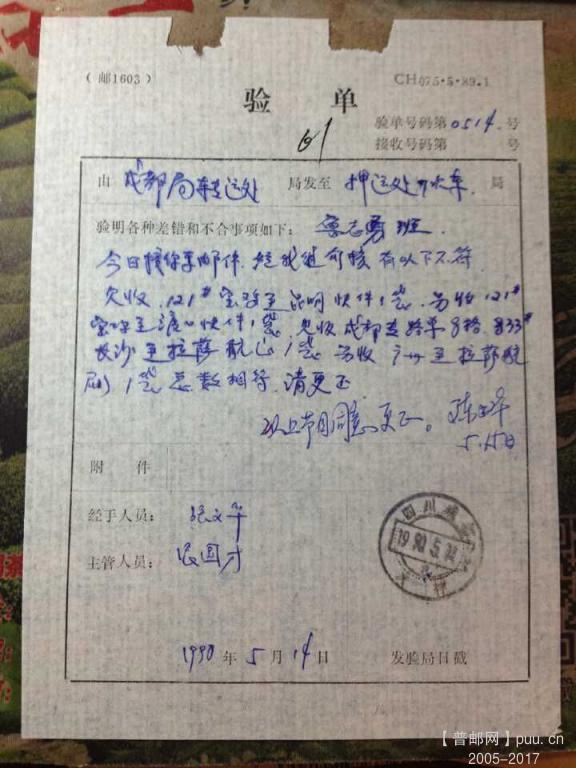 （邮1603）
CH075·5·89.1
验 单
61
验单号码第0514号
接收号码第 号
由 成都局转运处 局发至 押运处 火车 局
验明各种差错和不合事项如下： 志勇班
今日接你车邮件 经我 有以下不符
欠收 121# 宝鸡至昆明快件1袋 另收121#
宝鸡至渡口快件1袋 欠收成都 833#
长沙至拉萨航 1袋 另收 广州至拉萨航
刷1袋 总数相符 请更正
以上节目同意更正。陈
5.15日
附 件
经手人员： 张文华
主管人员： 国才
四川成都
1990.5.14
1990年5月14日 发验局日戳
【普邮网】puu.cn
2005-2017